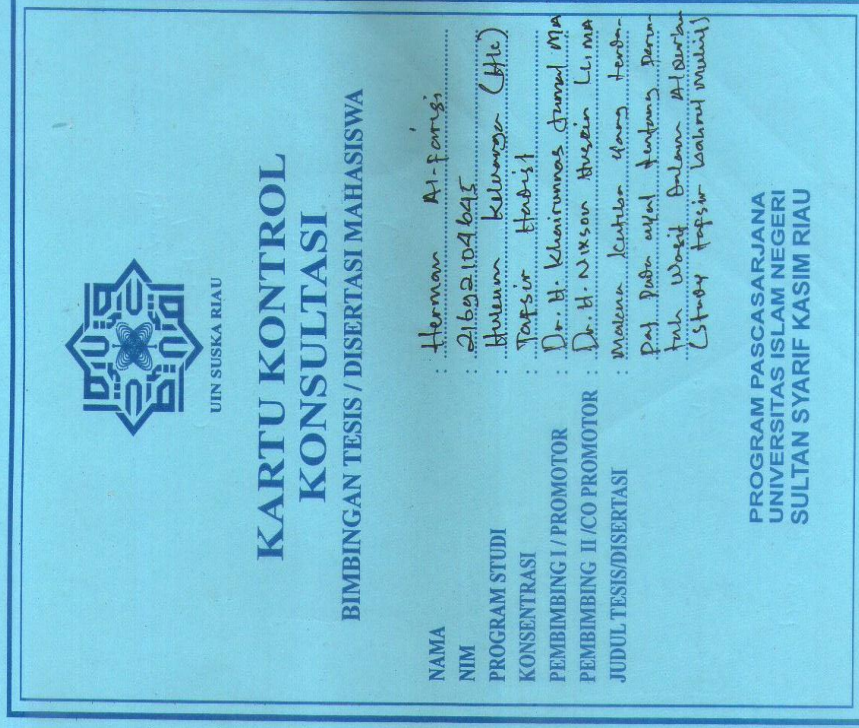 UIN SUSKA RIAU
KARTU KONTROL
KONSULTASI
BIMBINGAN TESIS / DISERTASI MAHASISWA
NAMA : Herman Al-Farisi
NIM : 21692104645
PROGRAM STUDI : Hukum Keluarga (HK)
KONSENTRASI : Tafsir Hadist
PEMBIMBING I / PROMOTOR : Dr. H. Khairunnas Jamal MA
PEMBIMBING II /CO PROMOTOR : Dr. H. Nixson Husein LL.MA
JUDUL TESIS/DISERTASI : Makna Kutiba yang terda-
pat pada ayat tentang Perin-
tah Wasit Dalam AlQur'an
(Study tafsir bahrul muhit)
PROGRAM PASCASARJANA
UNIVERSITAS ISLAM NEGERI
SULTAN SYARIF KASIM RIAU